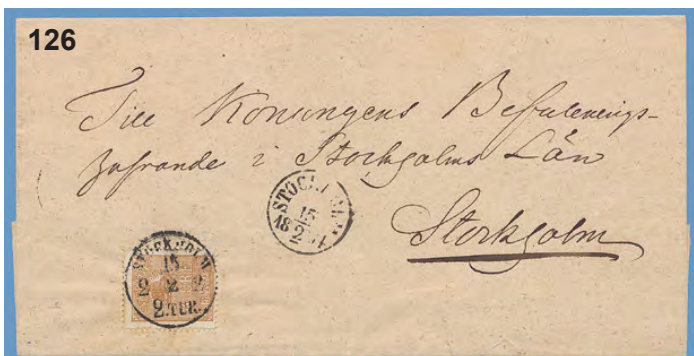 126
Till Konungens Befallnings-
hafvande i Stockholms Län
Stockholm
STOCKHOLM
15
2
18
STOCKHOLM
15
2
2. TUR.